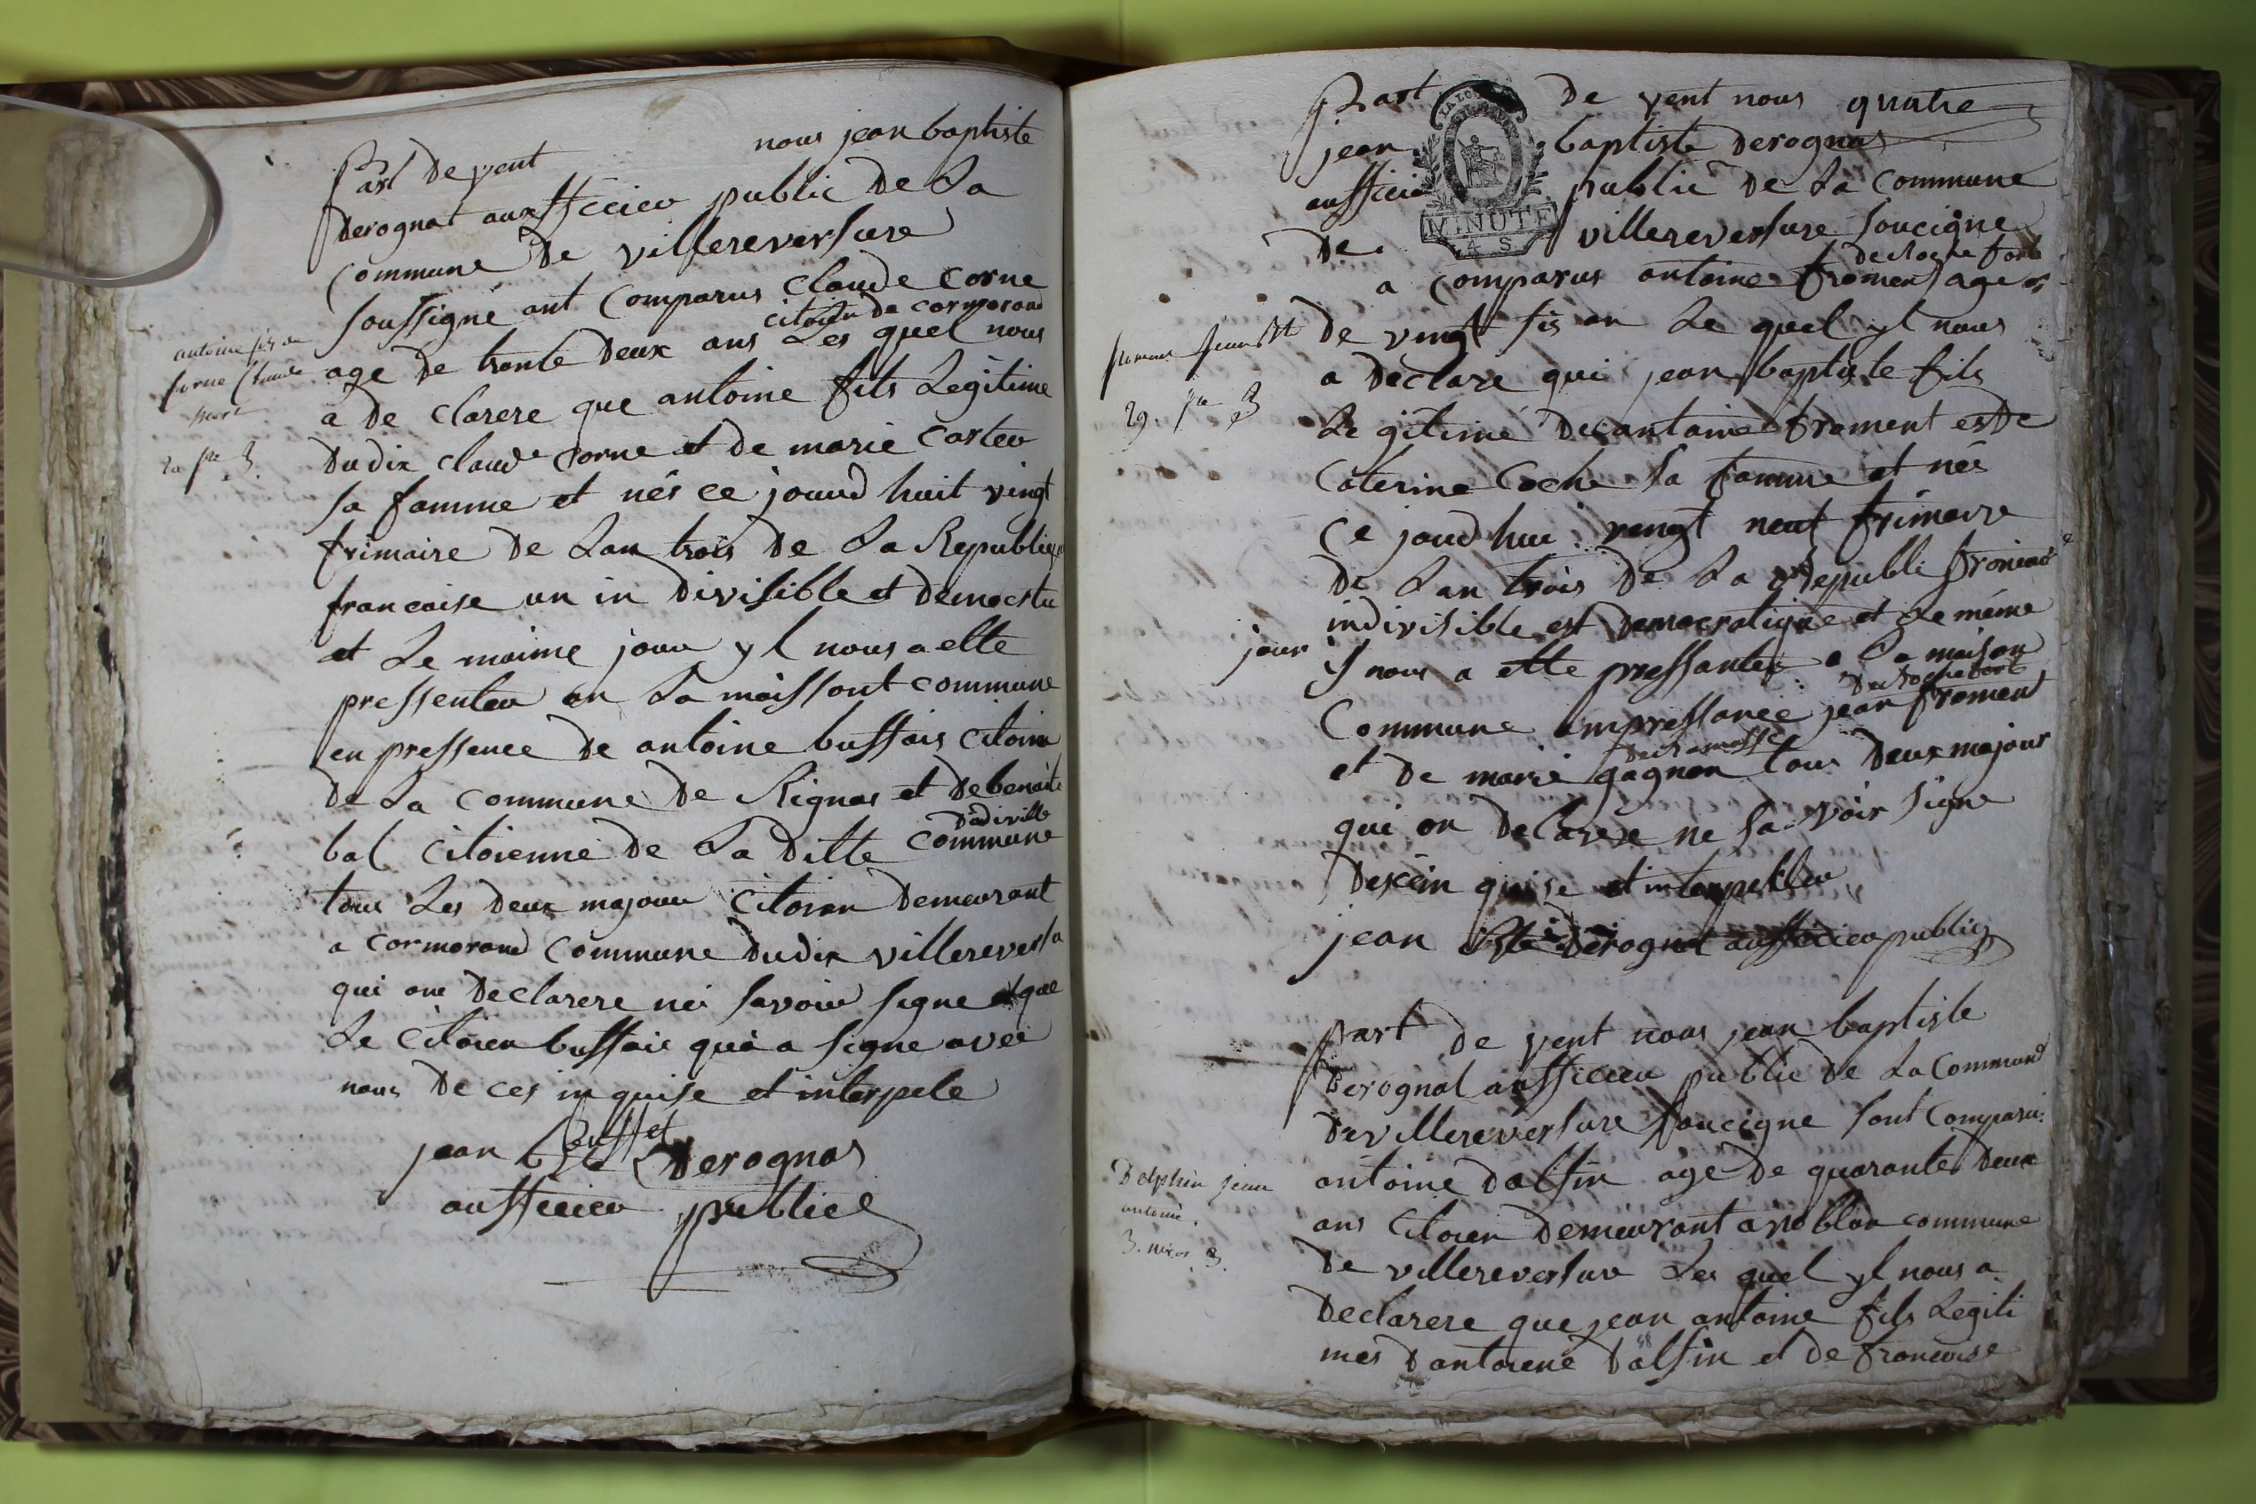 Part De vent nous jean baptiste
Derognat aufficieu public De La
Commune De villereversure
soussigné ont Comparus Claude Corne
citoien de cormorand
age De trante Deux ans Les quel nous
a De clarere que antoine fils Legitime
Dudix claude Corne et De marie Carteu
sa famme et nés ce jourd huit vingt
frimaire De Lan trois De La Republiq
francaise un in Divisible et Democrtu
et Le maime jour yl nous a ette
pressenteu an La maissont commune
en pressence De antoine buffais citoin
De La Commune De Rignas et De benoite
bal Citoienne De La Ditte Commune
tous Les Deux majour Citoien Demeurant
a Cormorand Commune Dudix villereversu
qui one Declarere nei savoir signe que
Le Citoien buffais qui a signe avec
nous De ces in quise et interpele
Buffet
jean bte Derognas
aufficieu public
antoine fils de
Corne Claude
mort
20 fre 3.
Part De vent nous quatre
jean baptiste Derognas
aufficie public De La Commune
De villereversure soucigne
De Roche fort
a Comparus antoine froment age
De vingt sis an Le quel yl nous
a Declare qui jean baptiste fils
Le gitime De antoine froment est De
Caterine Coche sa famme et nés
Ce jourd hui vengt neuf frimaire
De Lan trois De La Republi francais
indivisible est Democratique et Le méme
jour il nous a ette pressanteu a La maison
De Rochefort
Commune empressance jean froment
De Ramasse
et De marie gagnon tous Deux majour
qui on Delarere ne sa voir signe
Descein quise et interpelleu
jean Bte Derognat aufficieu public
froment jean Bte
29. fre 3
part De vent nous jean baptiste
Derognat aufficieu public De La Commune
De villereversure soucigne sont Comparu
antoine Dalfin age De quarante Deux
ans Citoien Demeurant a noblan commune
De villereversure Les quel yl nous a
Declarere que jean antoine fils Legiti
mes D antoiene Dalfin et De francoise
Delphin jean
antoine.
3. nivos. 3.